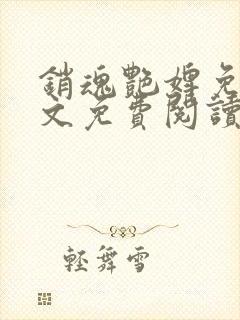 銷魂艷婢免
文免費閱讀
輕舞雪